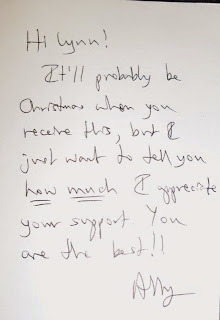 Hi Lynn!
It'll probably be
Christmas when you
receive this, but I
just want to tell you
how much I appreciate
your support. You
are the best!!
Ally